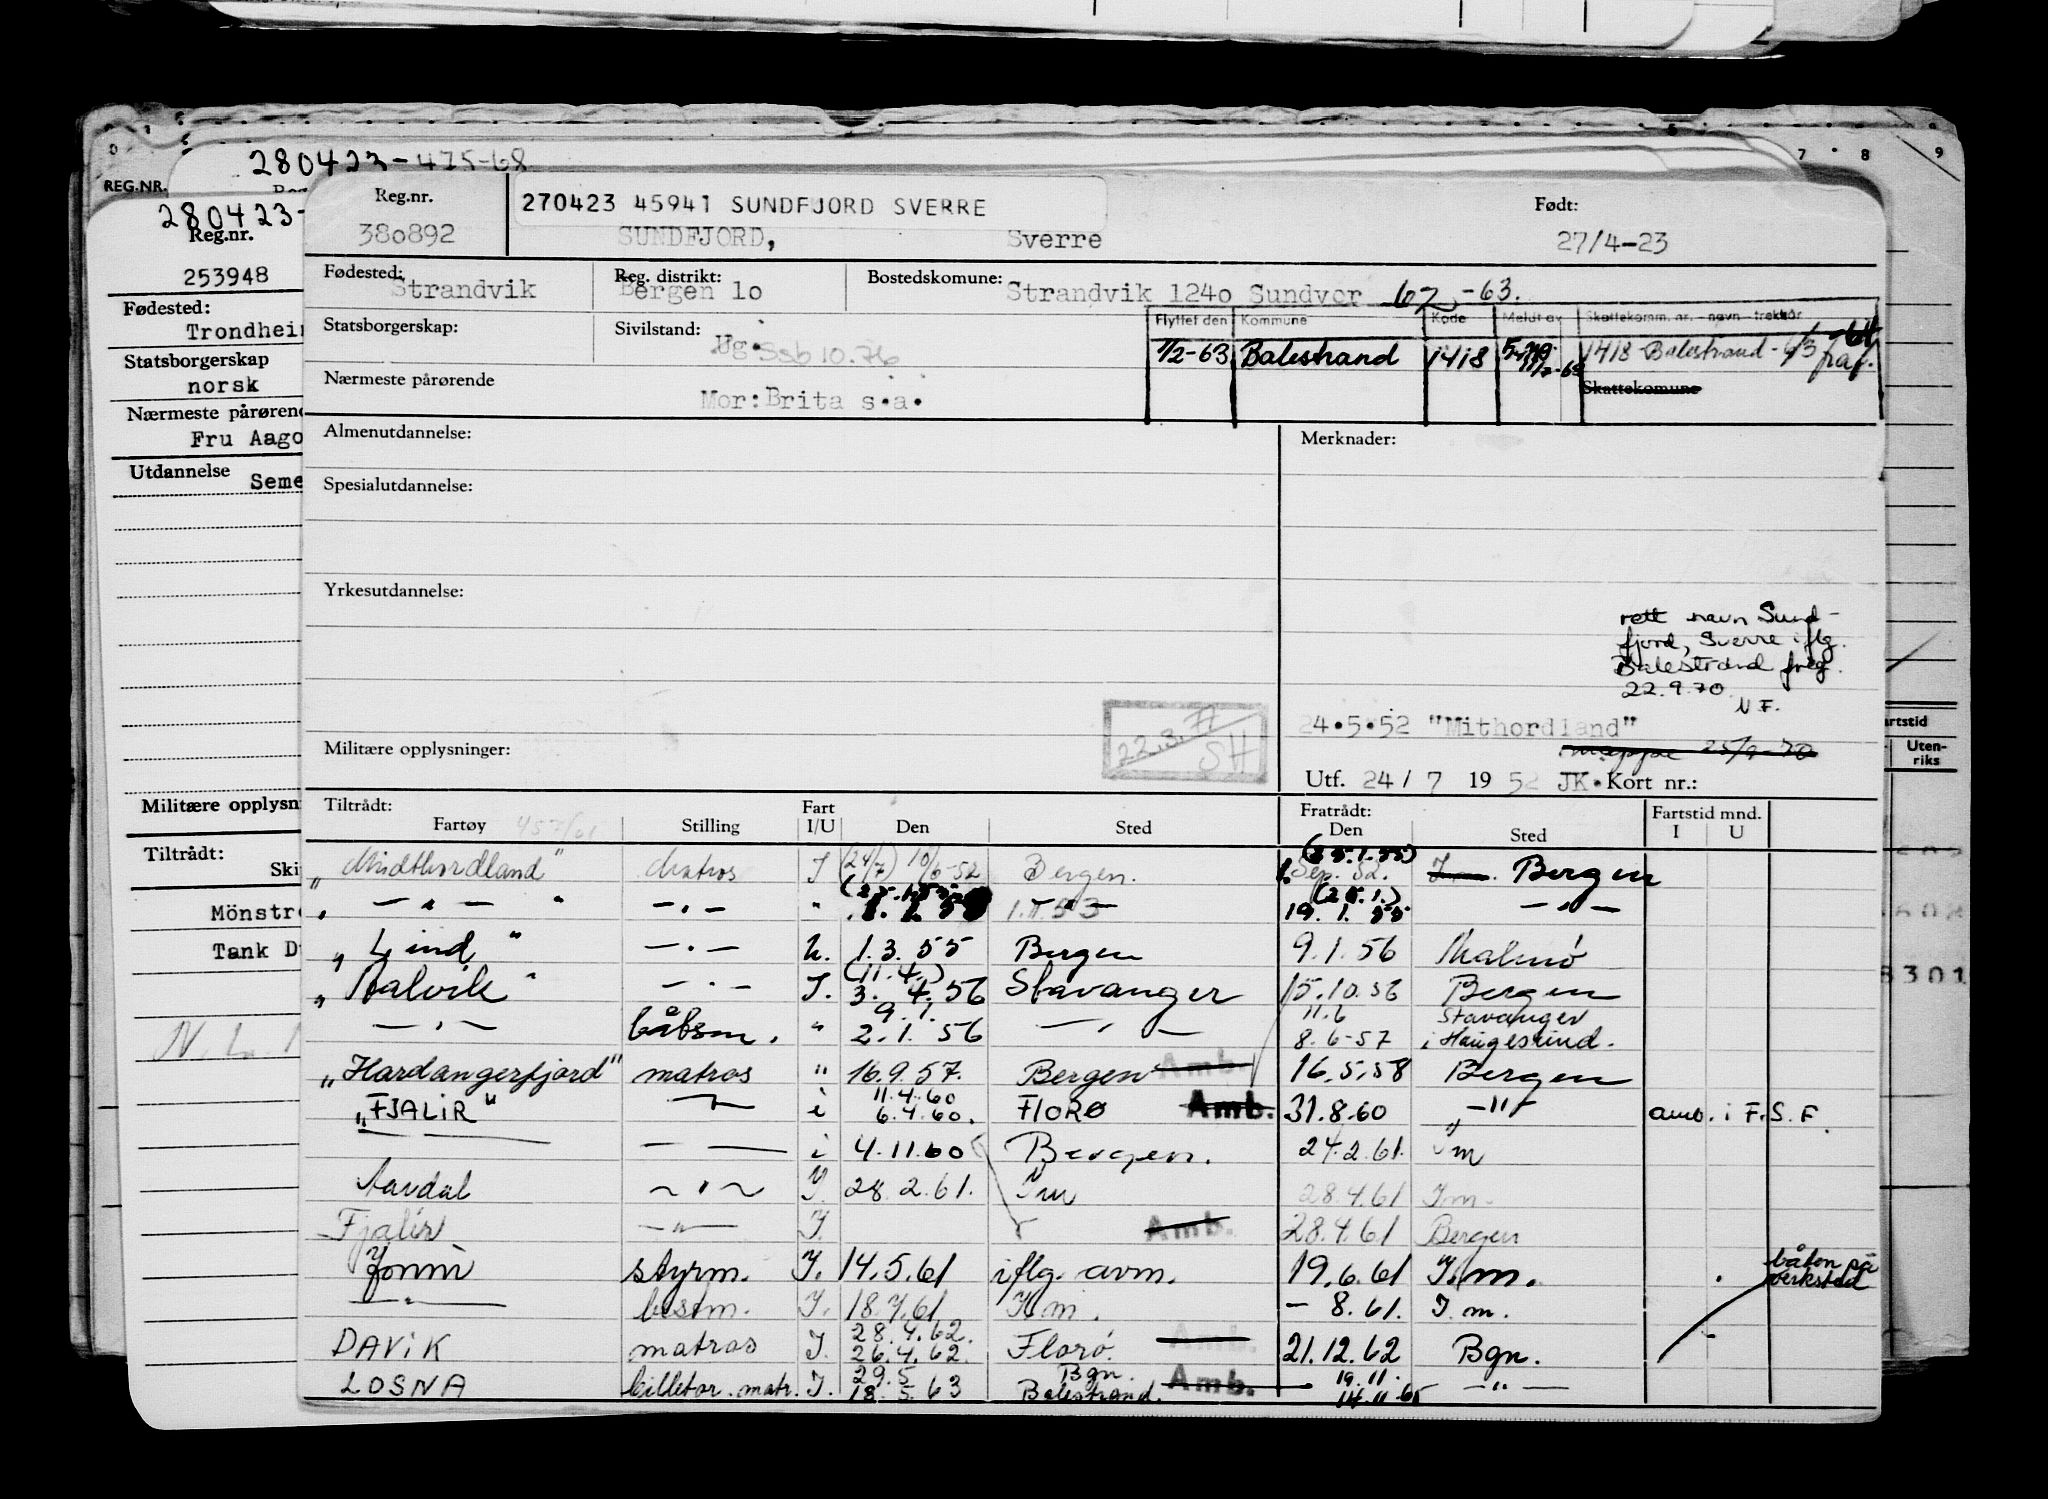 280423-475-68
REG.NR.
280423-
Reg.nr.
253948
Fødested:
Trondheim
Statsborgerskap
norsk
Nærmeste pårørend
Fru Aago
Utdannelse
Seme
Militære opplysn
Tiltrådt:
Ski
Mönstre
Tank D
7 8 9
artstid
Uten-
riks
8301
Reg.nr.
380892
270423 45941 SUNDFJORD SVERRE
SUNDFJORD, Sverre
Født:
27/4-23
Fødested: Strandvik
Reg. distrikt: Bergen 10
Bostedskomune: Strandvik 1240 Sundvor 62-63.
Statsborgerskap:
Sivilstand: Ug. Ssb 10.76
Flyttet den Kommune Kode Meldt av Skattekomm. nr. - navn - trekkår
1/2-63 Balestrand 1418 1418 Balestrand - 63
Skattekomune
Nærmeste pårørende
Mor: Brita s.a.
Almenutdannelse:
Merknader:
Spesialutdannelse:
Yrkesutdannelse:
rett navn Sund-
fjord, Sverre iflg.
Balestrand freg.
22.9.70
N F.
22.3.77
SH
24.5.52 "Mithordland"
mappe 25/9-70
Militære opplysninger:
Utf. 24/7 1952 JK. Kort nr.:
Tiltrådt: Fart Fratrådt: Fartstid mnd.
Fartøy 457/61 Stilling I/U Den Sted Den Sted I U
"Midthordland" Matros I (24/7) 10/6-52 Bergen. (25.1.55) 1. Sep. 52. I.m. Bergen
" — " — " — " — " 1.11.53 (25.1.) 19.1.55 — " —
"Lind" — " — U. 1.3.55 Bergen 9.1.56 Malmö
"Aalvik" — " — I. (11.4.) 3.4.56 Stavanger 15.10.56 Bergen
— " — båtsm. " 9.1. 2.1.56 — " — 11.6 Stavanger
8.6-57 i Haugesund.
"Hardangerfjord" matros " 16.9.57. Bergen Amb. 16.5.58 Bergen
"FJALIR" — " — i 11.4.60 6.4.60. FLORØ Amb. 31.8.60 — " — amb. i F.S.F.
— — — — i 4.11.60 Bergen. 24.2.61. Im
Aardal — " — I. 28.2.61. Im 28.4.61 I.m.
Fjalir — " — I. Amb. 28.4.61 Bergen
styrm. I. 14.5.61 iflg. avm. 19.6.61 I.m. båten på verksted
— " — bestm. I. 18.7.61 I.m. - 8.61. I.m.
DAVIK matros I. 28.4.62. 26.4.62. Florø. Amb. 21.12.62 Bgn.
LOSNA billetør. matr. I. 29.5 18.5.63 Bgn. Balestrand. Amb. 19.11. 14.11.65 — " —